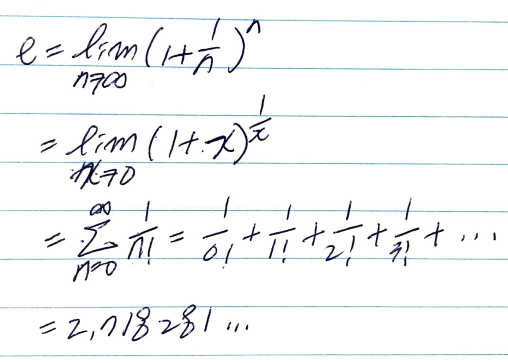 e = lim_{n→∞} (1 + 1/n)^n
= lim_{x→0} (1 + x)^{1/x}
= ∑_{n=0}^{∞} 1/n! = 1/0! + 1/1! + 1/2! + 1/3! + ...
= 2,718281...